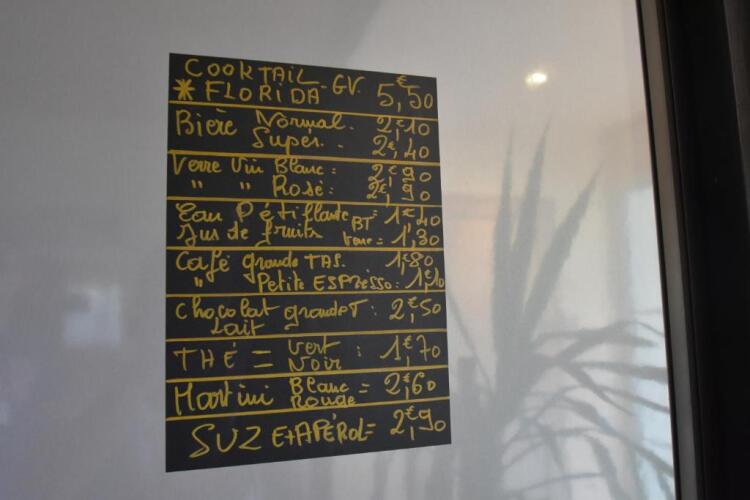 COOKTAIL - GV. 5,€50
* FLORIDA
Bière Normal. 2,€10
Super.. 2,€40
Verre Vin Blanc: 2,€90
" " Rosé: 2,€90
Eau Pétiflante BT = 1,€40
Jus de fruits verre = 1,30
Café grande TAS. 1,€80
" Petite ESPresso: 1,€10
Chocolat grande T: 2,€50
Lait
THÉ = Vert : 1,€70
Noir
Martini Blanc = 2,€60
Rouge
SUZ Et APÉROL = 2,€90